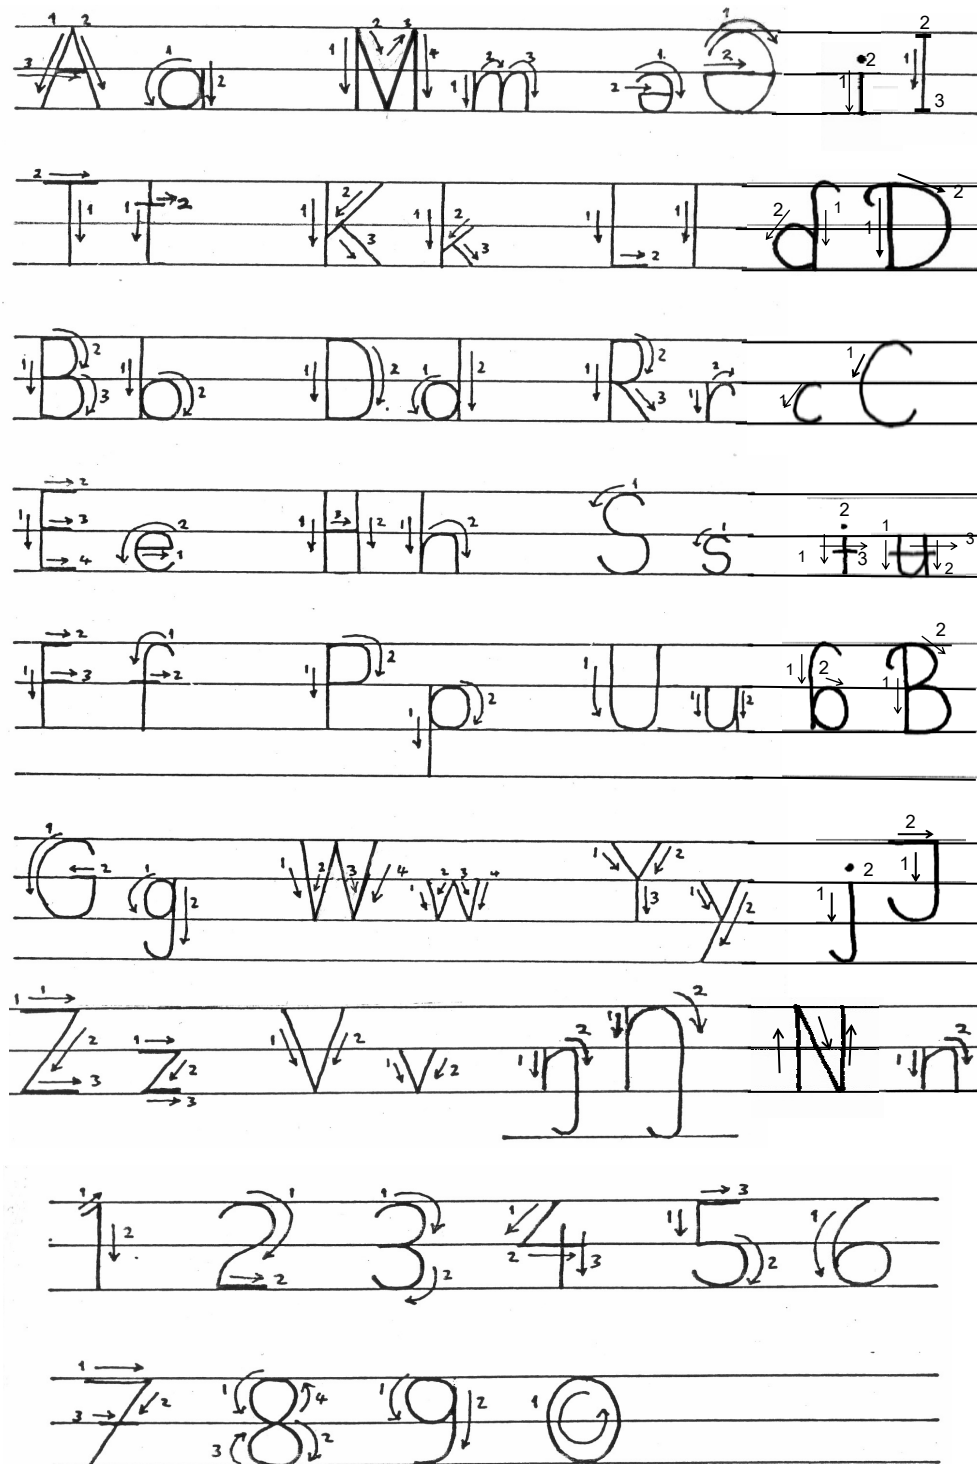 A a M m ə Ə i I
T t K k L l ɗ Ɗ
B b D d R r c C
E e H h S s ɨ ʉ
F f P p U u ɓ Ɓ
G g W w Y y j J
Z z V v ŋ Ŋ N n
1 2 3 4 5 6
7 8 9 0